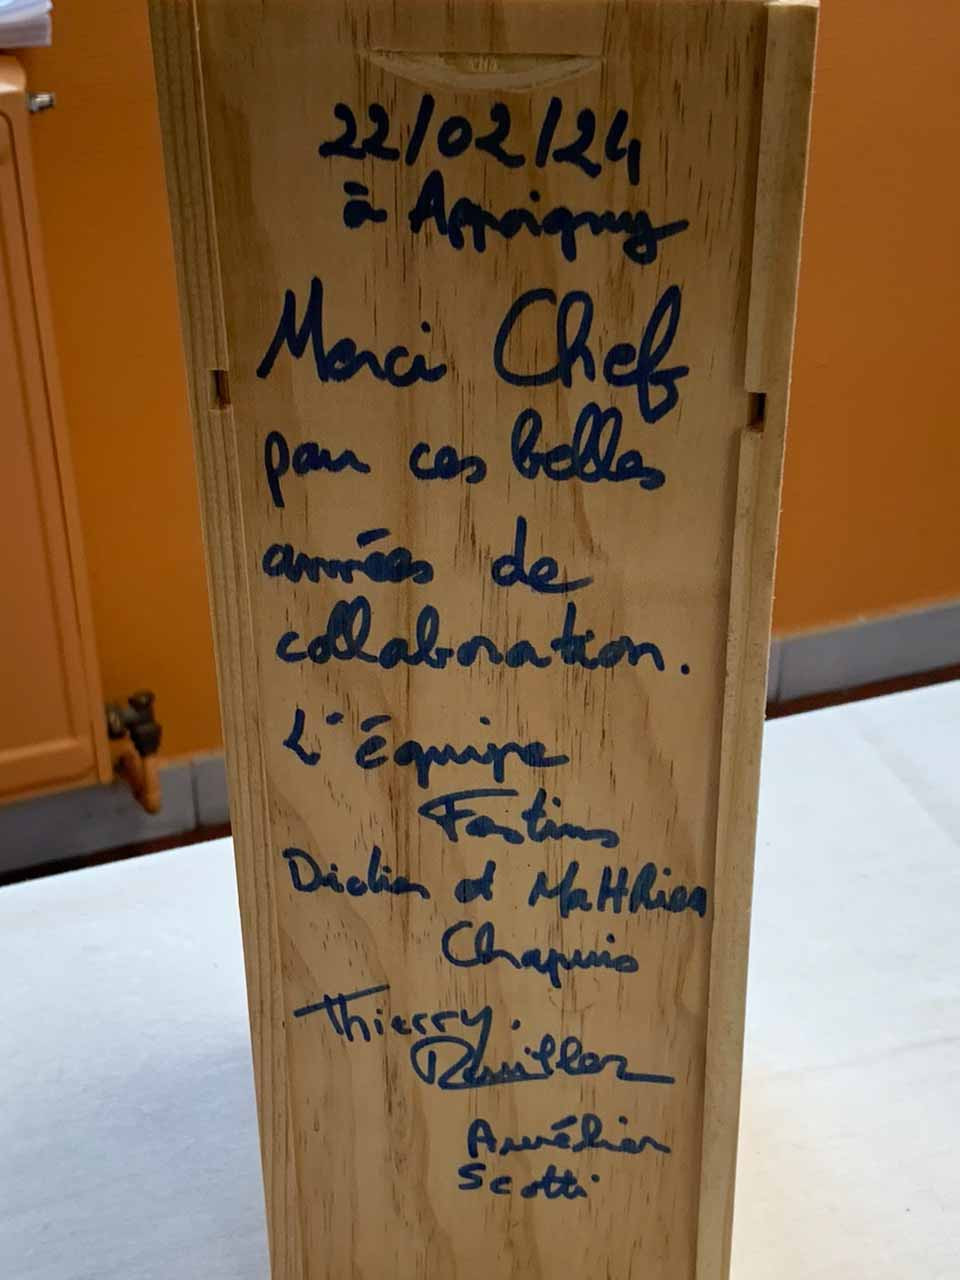 22/02/24
à Appoigny
Merci Chef
pour ces belles
années de
collaboration.
L'équipe
Didier et Matthieu
Chapuis
Thierry
Aurélien
Scotti